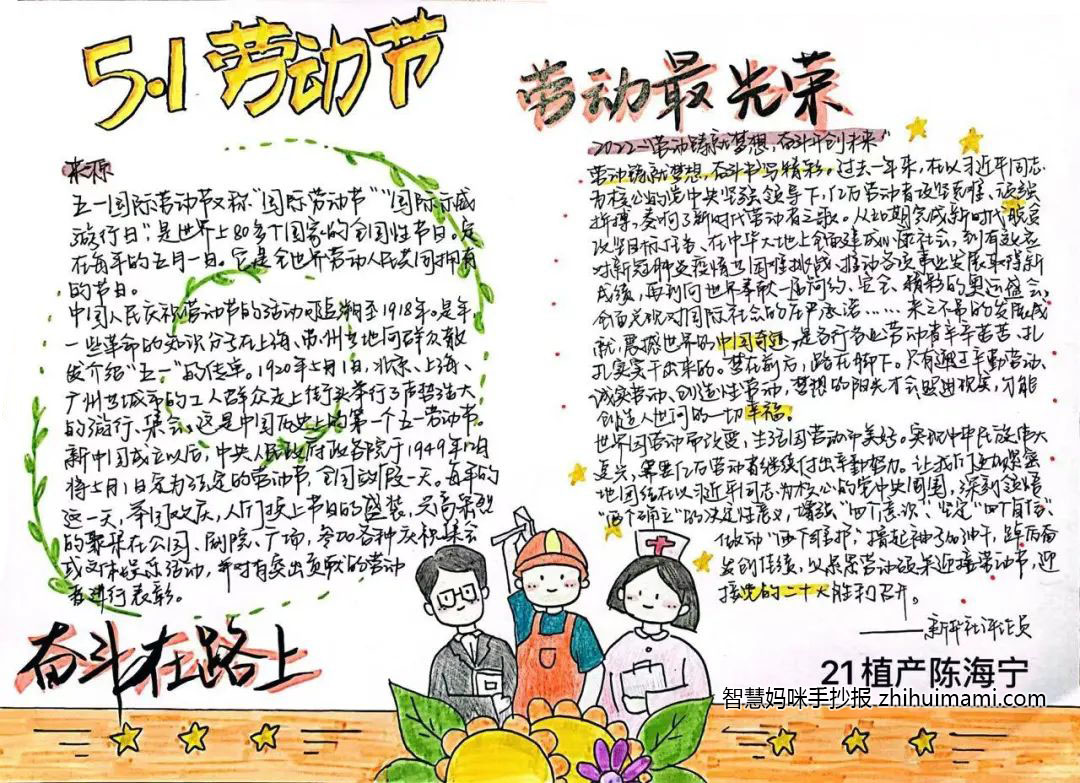 5·1劳动节
来源
五一国际劳动节又称"国际劳动节""国际示威
游行日",是世界上80多个国家的全国性节日。定
在每年的五月一日。它是全世界劳动人民共同拥有
的节日。
中国人民庆祝劳动节的活动可追溯至1918年。是年
一些革命的知识分子在上海、苏州等地向群众散
发介绍"五一"的传单。1920年5月1日,北京、上海、
广州等城市的工人群众走上街头举行了声势浩大
的游行、集会,这是中国历史上的第一个五一劳动节。
新中国成立以后,中央人民政府政务院于1949年12月
将5月1日定为法定的劳动节,全国放假一天。每年的
这一天,举国欢庆,人们换上节日的盛装,兴高采烈
的聚集在公园、剧院、广场,参加各种庆祝集会
或文体娱乐活动,并对有突出贡献的劳动
者进行表彰。
奋斗在路上
劳动最光荣
2022-"劳动铸就梦想,奋斗开创未来"
劳动铸就梦想,奋斗书写精彩。过去一年来,在以习近平同志
为核心的党中央坚强领导下,亿万劳动者攻坚克难、顽强
拼搏,奏响了新时代劳动者之歌。从如期完成新时代脱贫
攻坚目标任务、在中华大地上全面建成小康社会,到有效应
对新冠肺炎疫情等困难挑战、推动各项事业发展取得新
成绩,再到向世界奉献一届简约、安全、精彩的奥运盛会,
全面兑现对国际社会的庄严承诺……来之不易的发展成
就,震撼世界的中国奇迹,是各行各业劳动者辛辛苦苦、扎
扎实实干出来的。梦在前方,路在脚下。只有通过辛勤劳动、
诚实劳动、创造性劳动,梦想的阳光才会照进现实,才能
创造人世间的一切幸福。
世界因劳动而改变,生活因劳动而美好。实现中华民族伟大
复兴,需要亿万劳动者继续付出辛勤努力。让我们更加紧密
地团结在以习近平同志为核心的党中央周围,深刻领悟
"两个确立"的决定性意义,增强"四个意识"、坚定"四个自信"、
做到"两个维护",撸起袖子加油干,踔厉奋
发创佳绩,以累累劳动硕果迎接劳动节,迎
接党的二十大胜利召开。
——新华社评论员
21植产陈海宁
智慧妈咪手抄报 zhihuimami.com